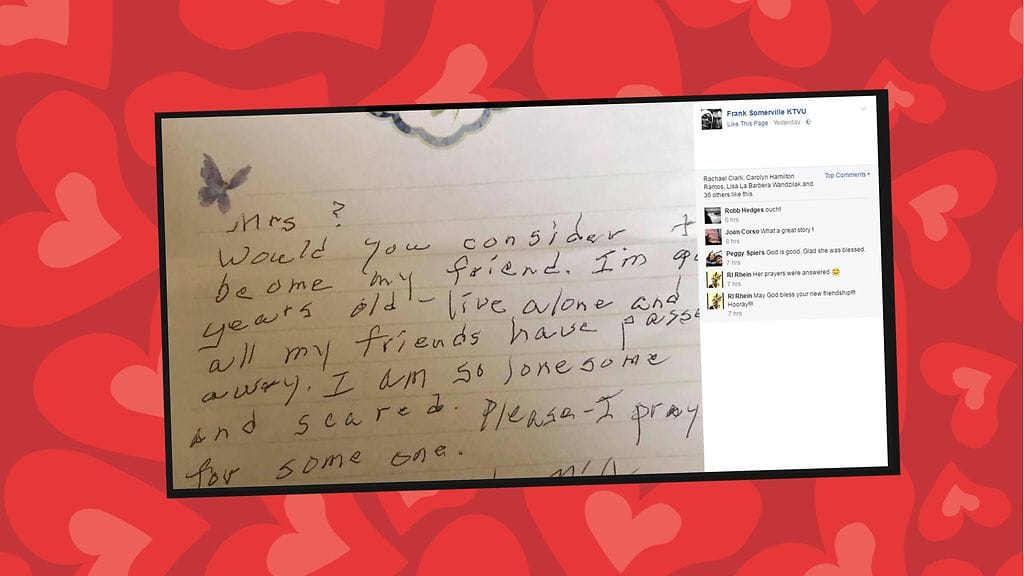 Mrs ?
Would you consider
become my friend. I'm
years old - live alone and
all my friends have
away. I am so lonesome
and scared. Please - I pray
for some one.
Frank Somerville KTVU
Like This Page · Yesterday ·
Rachael Clark, Carolyn Hamilton
Ramos, Lisa La Barbera Wandzilak and
36 others like this.
Top Comments
Robb Hedges ouch!
6 hrs
Joan Corso What a great story !
8 hrs
Peggy Spiers God is good. Glad she was blessed.
7 hrs
RI Rhein Her prayers were answered 😊
7 hrs
RI Rhein May God bless your new friendship!!!
Hooray!!!
7 hrs